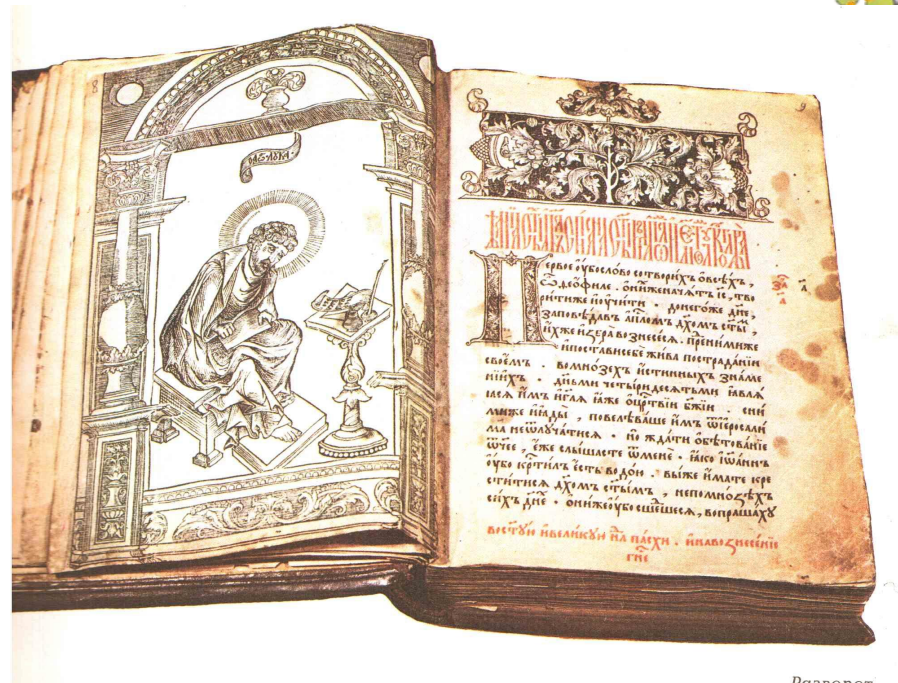 8
9
ервое ꙋ҆бо сло́во сотвори́хъ ѻ҆ всѣ́хъ,
ѽ ѳео́филе . ѻ҆ ни́хже нача́тъ і҆с, тво
рити же и҆ ᲂу҆чи́ти до него́же дн҃е,
заповѣ́давъ а҆пⷭ҇ломъ дх҃омъ ст҃ы́ ,
и҆́хже и҆ꙁбра̀ воꙁнесе́сѧ . пре́ ни́миже
и҆ поста́ви себѐ жи́ва по страда́нїи
свое́мъ . во мно́ꙁехъ и҆́стинныхъ ꙁна́ме
нїихъ . дн҃ьми четы́ридесѧтьми ꙗ҆влѧ́
ꙗсѧ и҆̀мъ и҆ гл҃ѧ ꙗ҆́же ѻ҆ црⷭ҇твїи бж҃їи . сни́
миже и҆ ꙗ҆ды̀ , повелѣва́ше и҆̀мъ ѿ і҆ероса́ли
ма не ѿлꙋча́тисѧ . но̀ жда́ти ѻ҆бѣтова́нїе
ѿчее , є҆́же слы́шасте ѿ менѐ . ꙗ҆́ко і҆ѡа́ннъ
ᲂу҆́бо крⷭ҇ти́лъ є҆́сть водо́ю . вы́ же и҆́мате кре
сти́тисѧ дх҃омъ ст҃ы́мъ , не по мно́ꙁѣхъ
си́хъ дн҃е . ѻ҆ни́ же ᲂу҆́бо сше́дшесѧ , вопраша́хꙋ
во ст҃ꙋю и҆ вели́кꙋю нⷣлю па́схи . и҆ на воꙁнесе́нїе
гн҃е